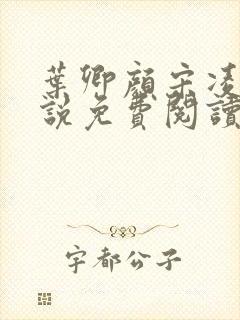 葉卿顏宋凌
說免費閱讀
宇都公子